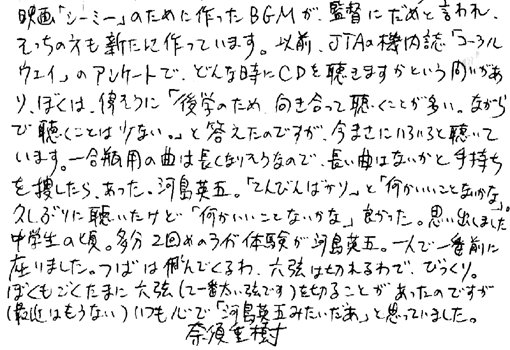 映画「シーミー」のために作ったBGMが、監督にだめと言われ、
そっちの方も新たに作っています。以前、JTAの機内誌「コーラル
ウェイ」のアンケートで、どんな時にCDを聴きますかという問いがあ
り、ぼくは、偉そうに「後学のため、向き合って聴くことが多い。ながら
で聴くことは少ない。」と答えたのですが、今まさにいろいろと聴いて
います。一合瓶用の曲は長くなりそうなので、長い曲はないかと手持ち
を捜したら、あった。河島英五。「てんびんばかり」と「何かいいことないかな」。
久しぶりに聴いたけど「何かいいことないかな」良かった。思い出しました
中学生の頃。多分2回めのライブ体験が河島英五。一人で一番前に
座りました。つばは飛んでくるわ、六弦は切れるわで、びっくり。
ぼくもごくたまに六弦(て一番太い弦です)を切ることがあったのですが
(最近はもうない)いつも心で「河島英五みたいだあ」と思っていました。
奈須重樹